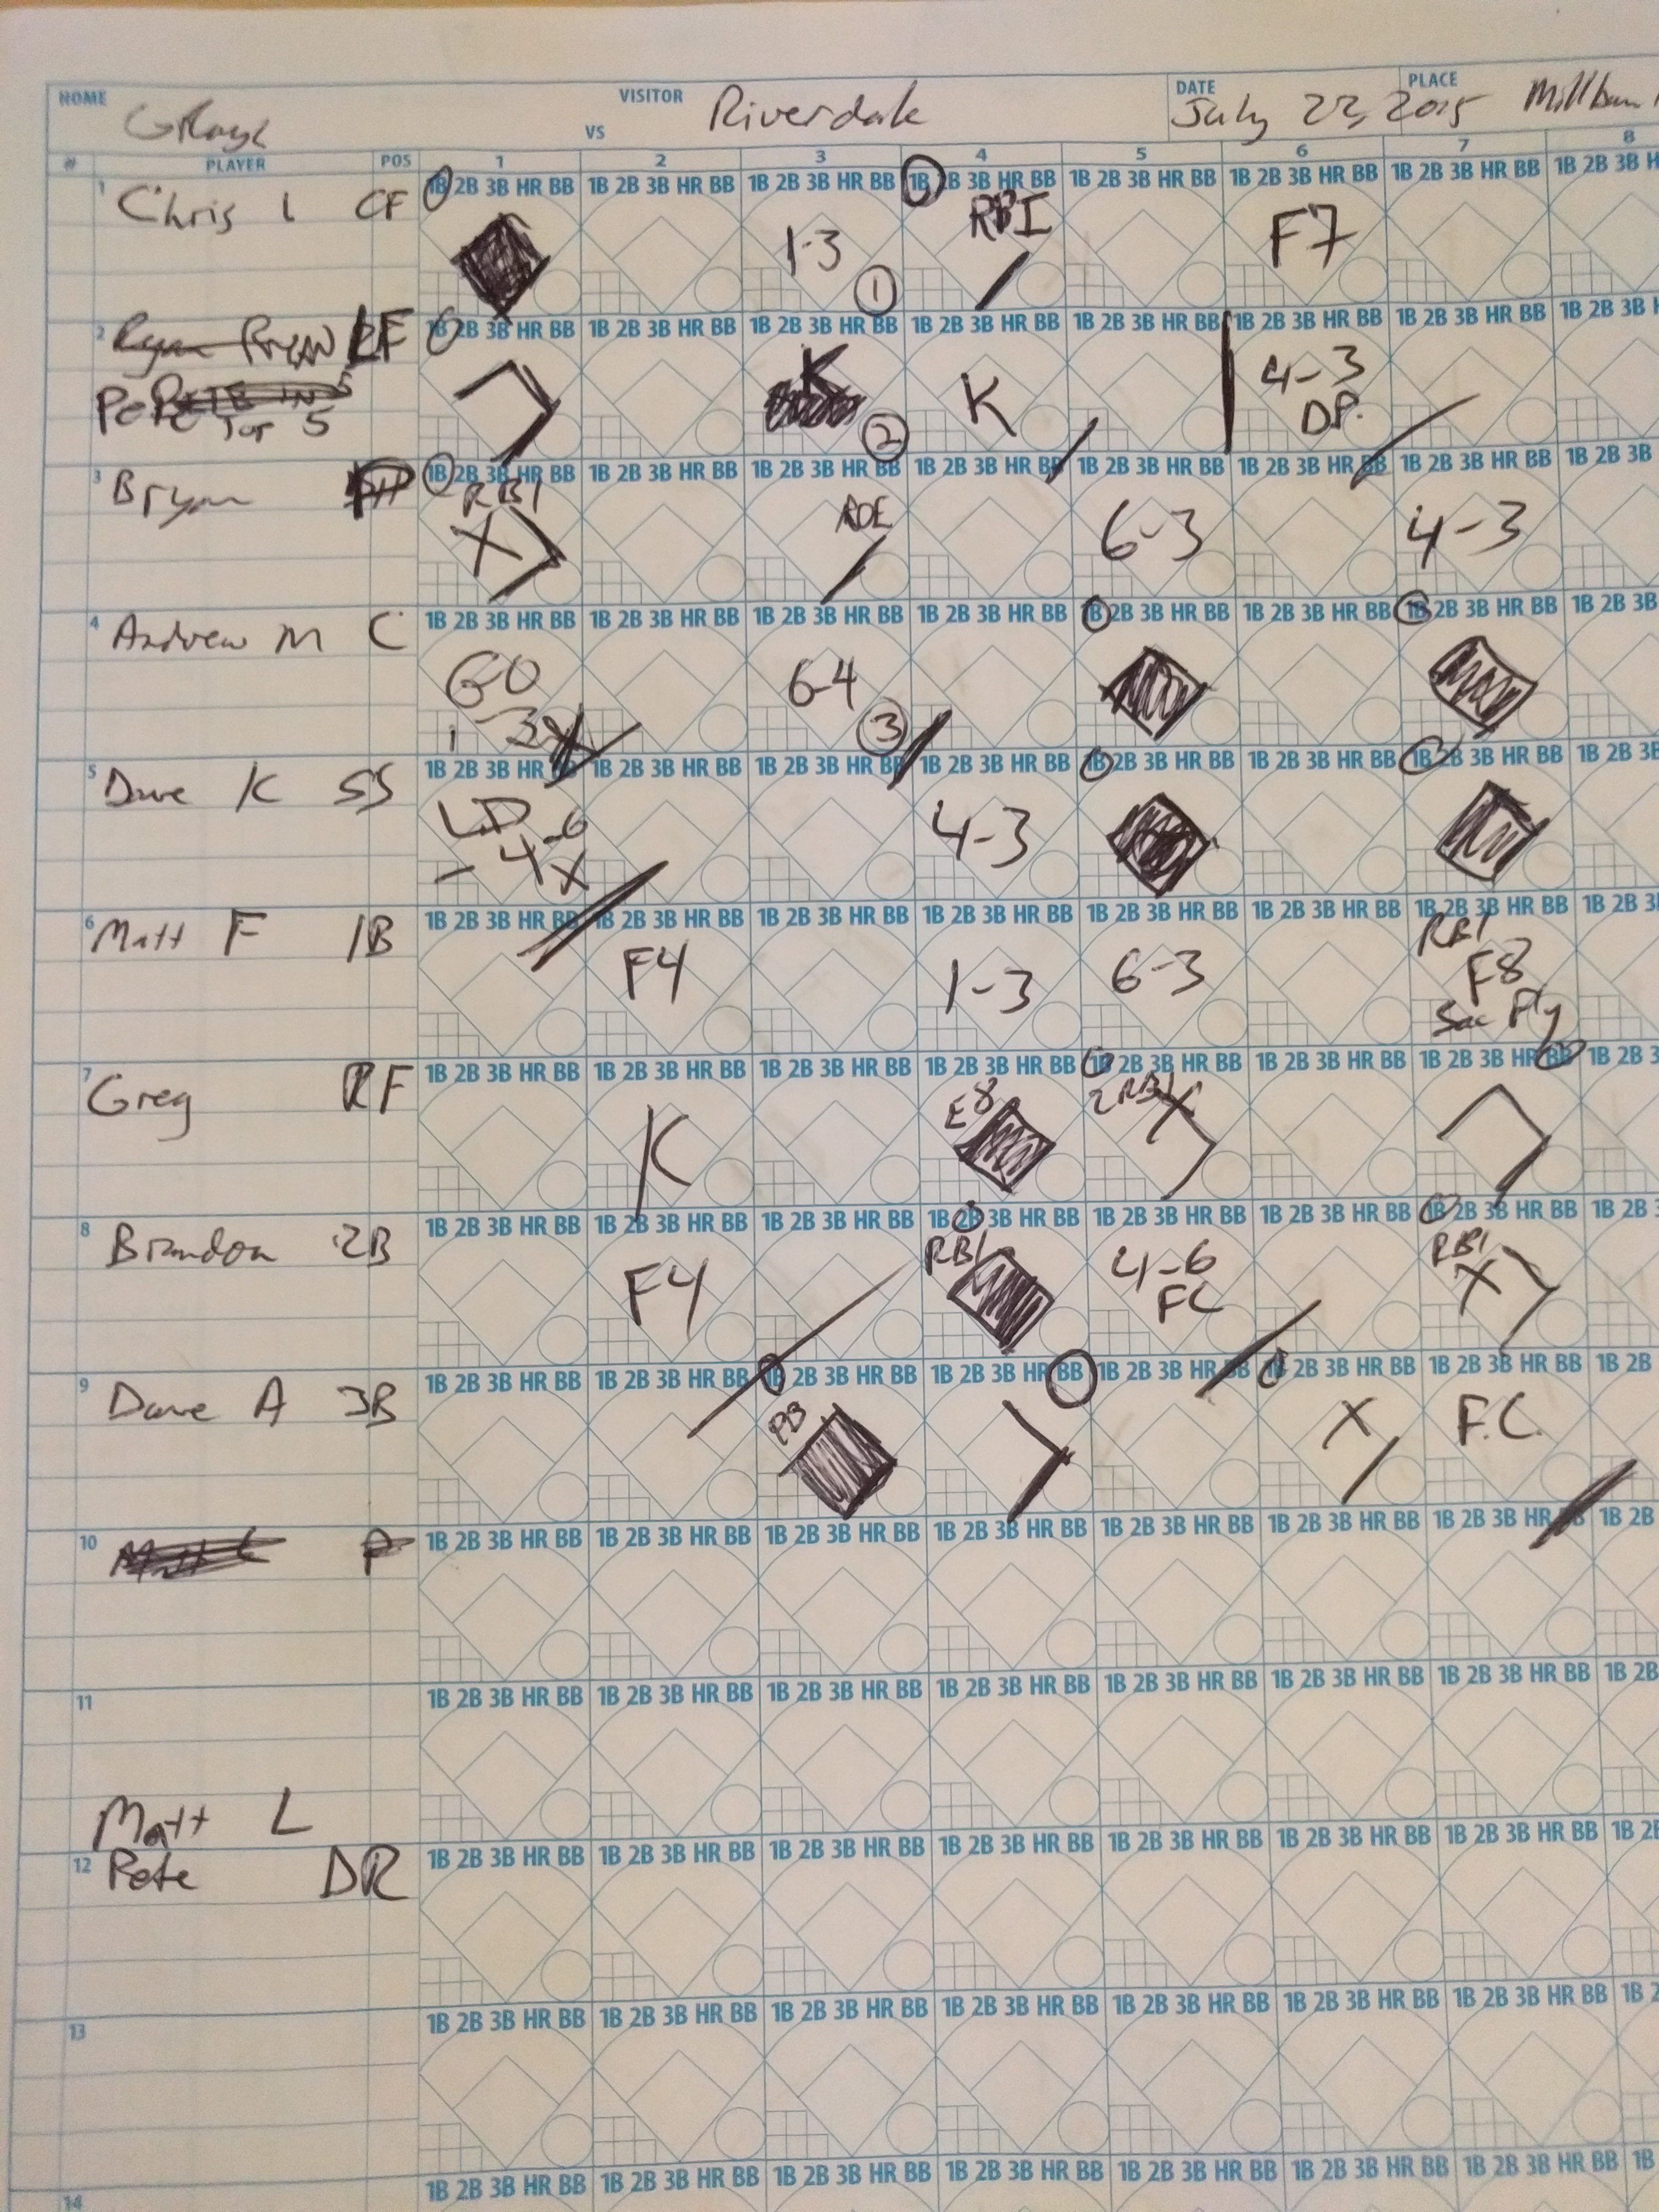 HOME VISITOR Riverdale DATE July 22, 2015 PLACE
VS
# PLAYER POS 1 2 3 4 5 6 7 8
1B 2B 3B HR BB 1B 2B 3B HR BB 1B 2B 3B HR BB 1B 2B 3B HR BB 1B 2B 3B HR BB 1B 2B 3B HR BB 1B 2B 3B HR BB 1B 2B 3B
1 Chris L CF 1-3 1 RBI F7
1B 2B 3B HR BB 1B 2B 3B HR BB 1B 2B 3B HR BB 1B 2B 3B HR BB 1B 2B 3B HR BB 1B 2B 3B HR BB 1B 2B 3B HR BB 1B 2B 3B HR
2 Ryan K 2 K 4-3 DP.
Top 5
1B 2B 3B HR BB 1B 2B 3B HR BB 1B 2B 3B HR BB 1B 2B 3B HR BB 1B 2B 3B HR BB 1B 2B 3B HR BB 1B 2B 3B HR BB 1B 2B 3B
3 Bryan RBI X ROE 6-3 4-3
1B 2B 3B HR BB 1B 2B 3B HR BB 1B 2B 3B HR BB 1B 2B 3B HR BB 1B 2B 3B HR BB 1B 2B 3B HR BB 1B 2B 3B HR BB 1B 2B 3B
4 Andrew M C GO 6-4 3
1B 2B 3B HR BB 1B 2B 3B HR BB 1B 2B 3B HR BB 1B 2B 3B HR BB 1B 2B 3B HR BB 1B 2B 3B HR BB 1B 2B 3B HR BB 1B 2B 3B
5 Dave K SS LD 4-6 X 4-3
1B 2B 3B HR BB 1B 2B 3B HR BB 1B 2B 3B HR BB 1B 2B 3B HR BB 1B 2B 3B HR BB 1B 2B 3B HR BB 1B 2B 3B HR BB 1B 2B 3B
6 Matt F 1B F4 1-3 6-3 RBI F8 Sac Fly
1B 2B 3B HR BB 1B 2B 3B HR BB 1B 2B 3B HR BB 1B 2B 3B HR BB 1B 2B 3B HR BB 1B 2B 3B HR BB 1B 2B 3B HR BB 1B 2B 3
7 Greg RF K E8 2RBI X
1B 2B 3B HR BB 1B 2B 3B HR BB 1B 2B 3B HR BB 1B 2B 3B HR BB 1B 2B 3B HR BB 1B 2B 3B HR BB 1B 2B 3B HR BB 1B 2B
8 Brandon 2B F4 RBI 4-6 FC RBI X
1B 2B 3B HR BB 1B 2B 3B HR BB 1B 2B 3B HR BB 1B 2B 3B HR BB 1B 2B 3B HR BB 1B 2B 3B HR BB 1B 2B 3B HR BB 1B 2B
9 Dave A 3B X F.C.
1B 2B 3B HR BB 1B 2B 3B HR BB 1B 2B 3B HR BB 1B 2B 3B HR BB 1B 2B 3B HR BB 1B 2B 3B HR BB 1B 2B 3B HR BB 1B 2B
10 P
1B 2B 3B HR BB 1B 2B 3B HR BB 1B 2B 3B HR BB 1B 2B 3B HR BB 1B 2B 3B HR BB 1B 2B 3B HR BB 1B 2B 3B HR BB 1B 2B
11
Matt L
1B 2B 3B HR BB 1B 2B 3B HR BB 1B 2B 3B HR BB 1B 2B 3B HR BB 1B 2B 3B HR BB 1B 2B 3B HR BB 1B 2B 3B HR BB 1B 2B
12 Pete DR
1B 2B 3B HR BB 1B 2B 3B HR BB 1B 2B 3B HR BB 1B 2B 3B HR BB 1B 2B 3B HR BB 1B 2B 3B HR BB 1B 2B 3B HR BB 1B 2
13
1B 2B 3B HR BB 1B 2B 3B HR BB 1B 2B 3B HR BB 1B 2B 3B HR BB 1B 2B 3B HR BB 1B 2B 3B HR BB 1B 2B 3B HR BB 1B
14